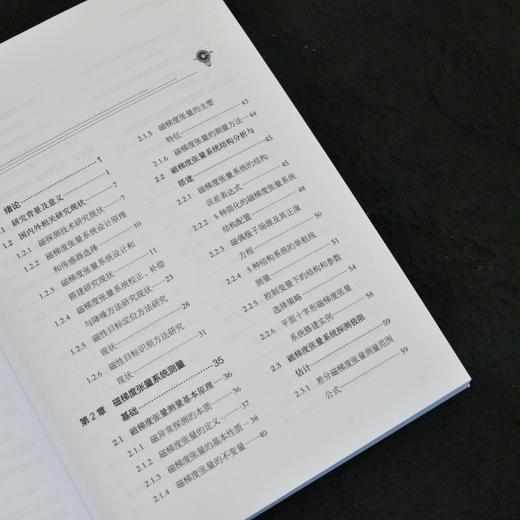 绪论 1
1 研究背景及意义 1
1.2 国内外相关研究现状 7
1.2.1 磁探测技术研究现状 7
1.2.2 磁梯度张量系统设计原理
和传感器选择 10
1.2.3 磁梯度张量系统设计和
搭建研究现状 11
1.2.4 磁梯度张量系统校正、补偿
与降噪方法研究现状 23
1.2.5 磁性目标定位方法研究
现状 28
1.2.6 磁性目标识别方法研究
现状 31
第2章 磁梯度张量系统测量
基础 35
2.1 磁梯度张量测量基本原理 36
2.1.1 磁异常探测的本质 36
2.1.2 磁梯度张量的定义 37
2.1.3 磁梯度张量的基本性质 38
2.1.4 磁梯度张量的不变量 40
2.1.5 磁梯度张量的主要
特征 43
2.1.6 磁梯度张量的测量方法 44
2.2 磁梯度张量系统结构分析与
搭建 45
2.2.1 磁梯度张量系统的结构
误差表达式 45
2.2.2 5种简化的磁梯度张量系统
结构配置 48
2.2.3 磁偶极子场源及其正演
方程 50
2.2.4 5种结构系统的单航线
测量 51
2.2.5 控制变量下的结构和参数
选择策略 54
2.2.6 平面十字形磁梯度张量
系统搭建实例 58
2.3 磁梯度张量系统探测极限
估计 59
2.3.1 差分磁梯度张量测量范围
公式 59